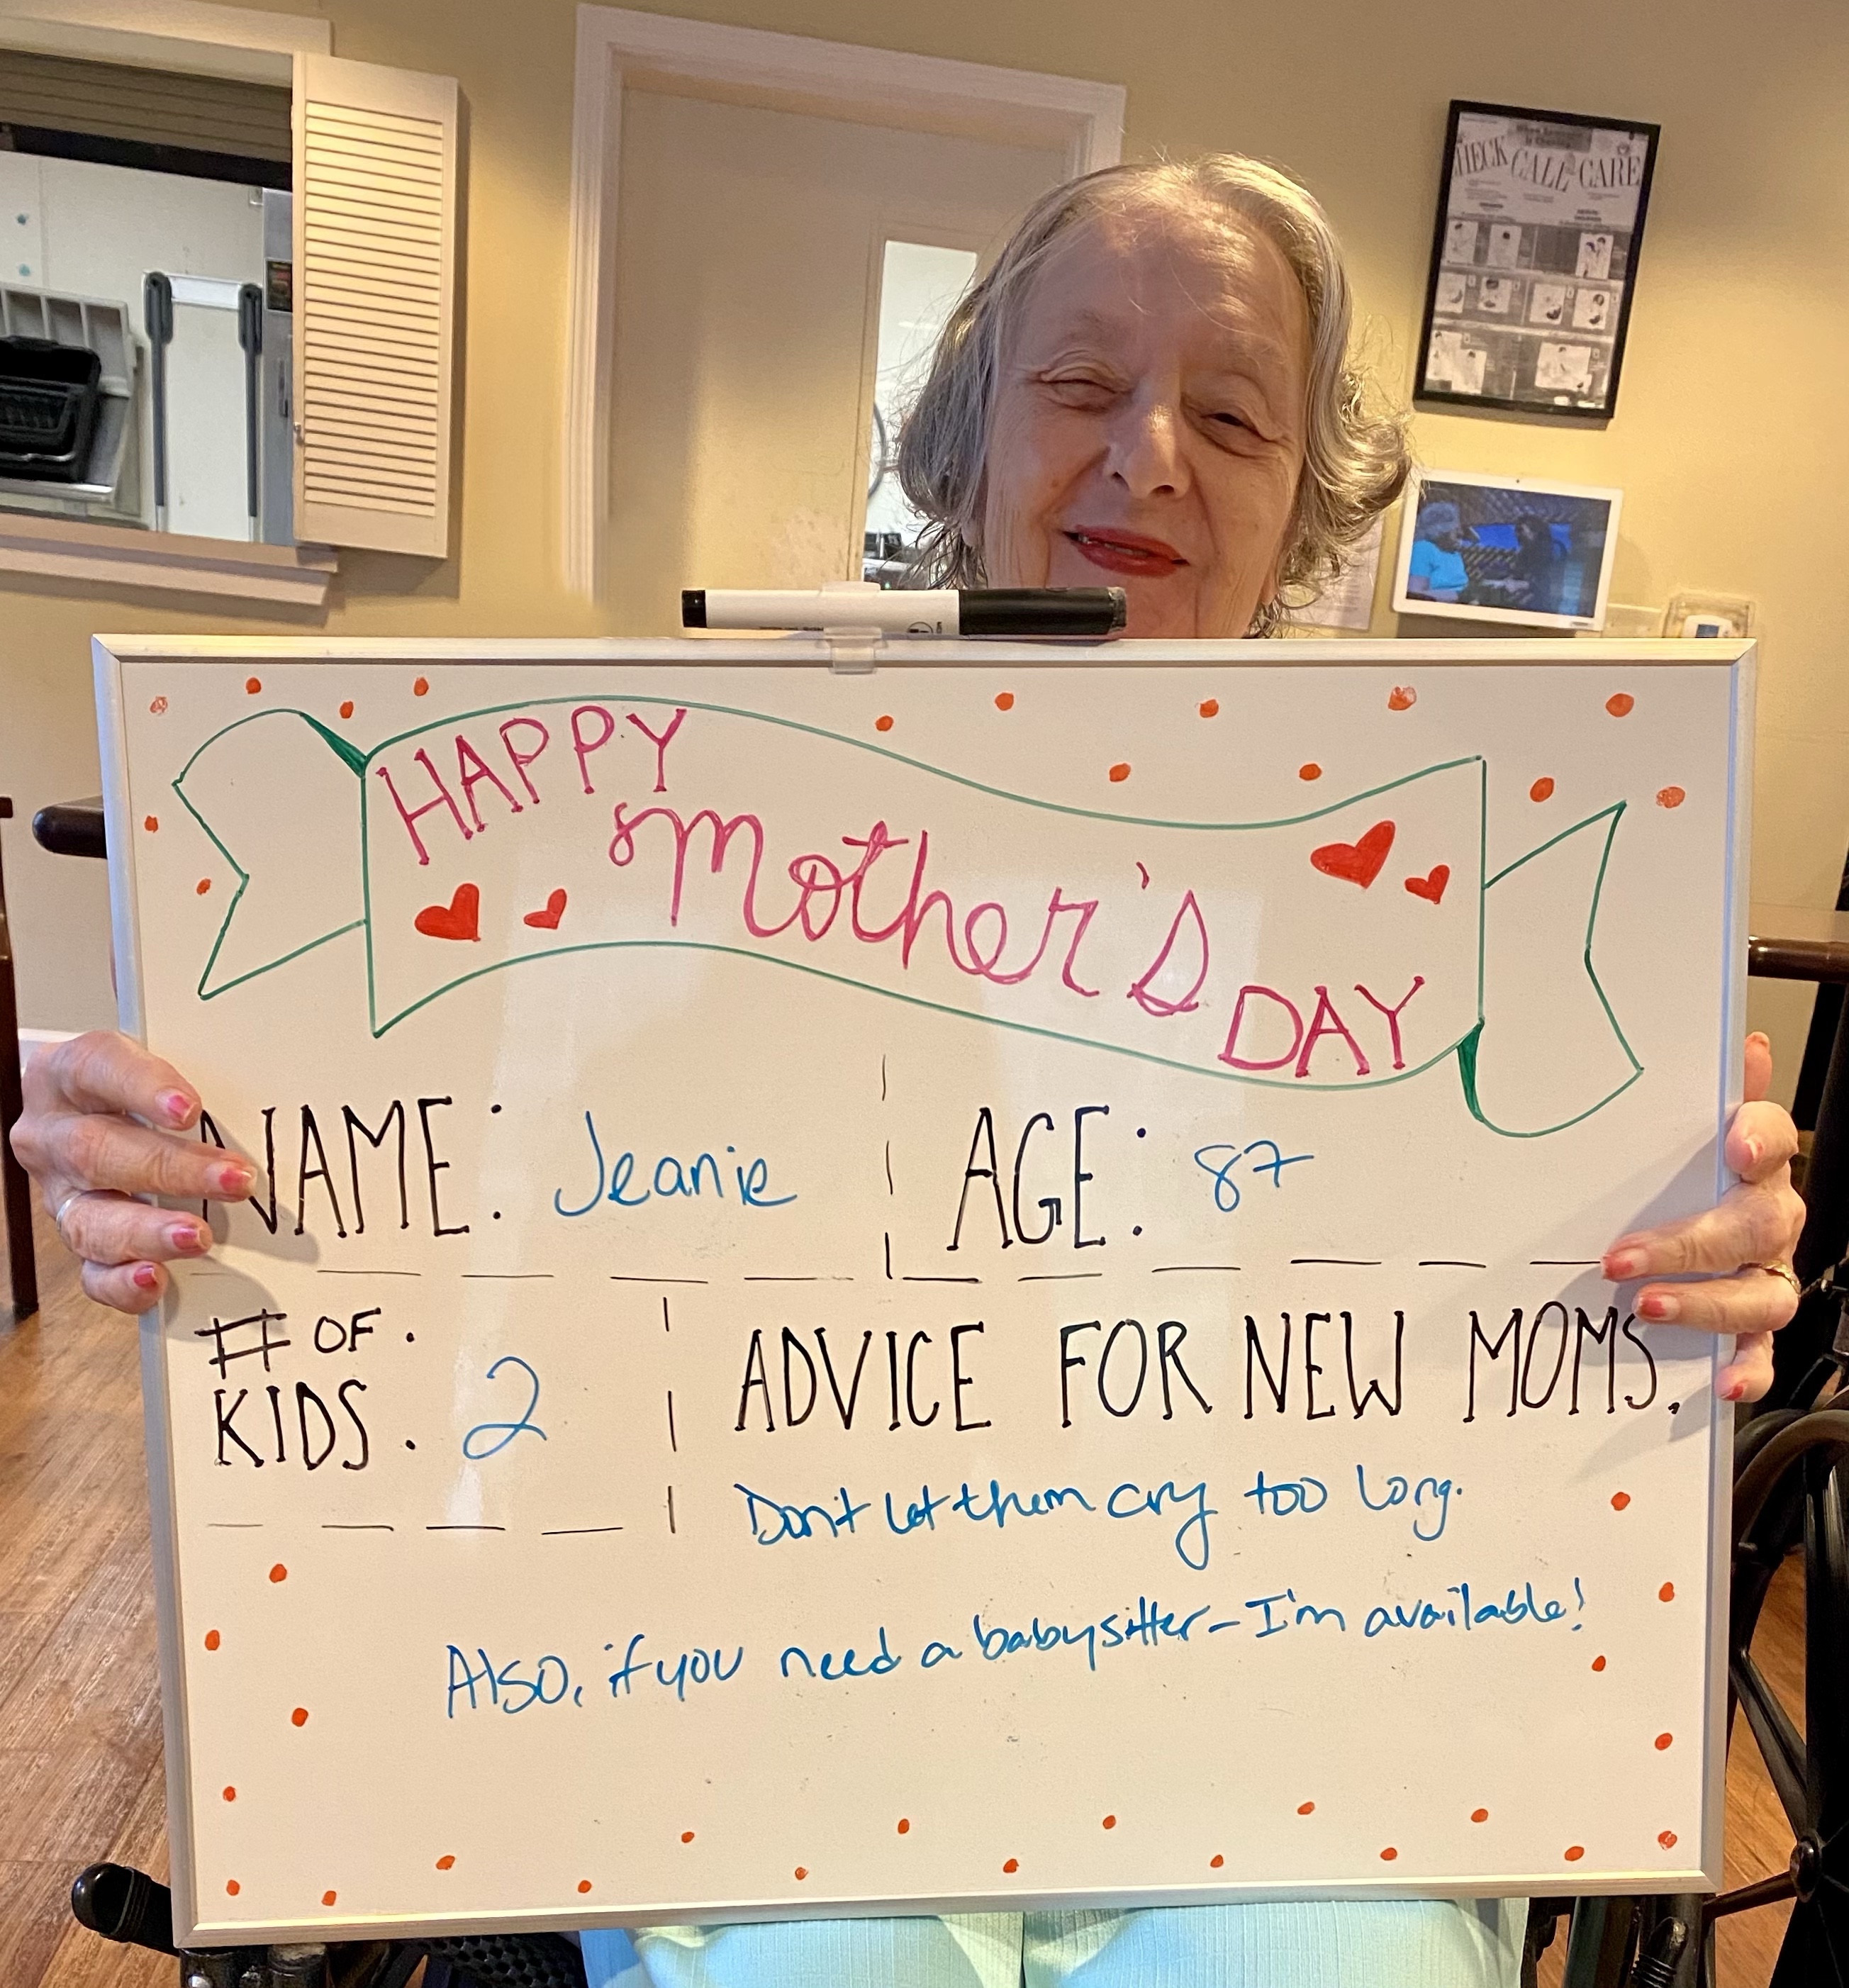 CHECK CALL CARE
HAPPY
Mother's
DAY
NAME: Jeanie
AGE: 87
# OF
KIDS: 2
ADVICE FOR NEW MOMS.
Don't let them cry too long.
Also, if you need a babysitter - I'm available!